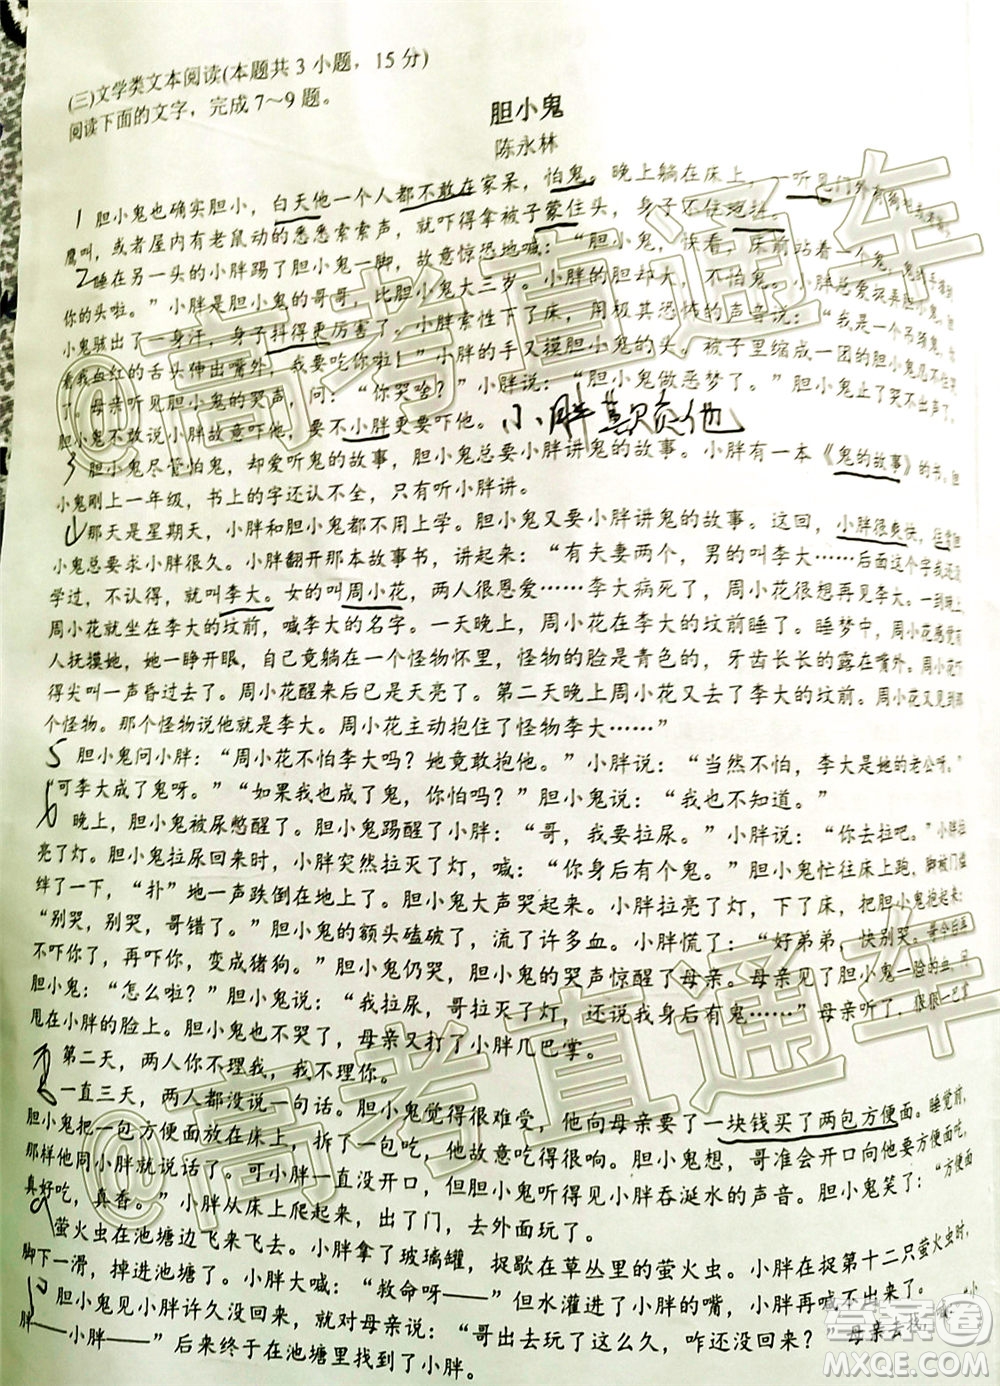 (三)文学类文本阅读(本题共3小题，15分)
阅读下面的文字，完成7～9题。
胆小鬼
陈永林
1 胆小鬼也确实胆小，白天他一个人都不敢在家呆，怕鬼。晚上躺在床上，一听见门外有
鹰叫，或者屋内有老鼠动的悉悉索索声，就吓得拿被子蒙住头，身子不住地抖。
2 睡在另一头的小胖踢了胆小鬼一脚，故意惊恐地喊：“胆小鬼，快看，床前站着一个鬼，
你的头啦。”小胖是胆小鬼的哥哥，比胆小鬼大三岁。小胖的胆却大，不怕鬼。小胖总爱捉弄胆小鬼，
小鬼骇出了一身汗，身子抖得更厉害了。小胖索性下了床，用极其恐怖的声音说：“我是一个吊颈鬼，
着我血红的舌头伸出嘴外，我要吃你啦！”小胖的手又摸胆小鬼的头。被子里缩成一团的胆小鬼
了。母亲听见胆小鬼的哭声，问：“你哭啥？”小胖说：“胆小鬼做恶梦了。”胆小鬼止了哭不出声了。
胆小鬼不敢说小胖故意吓他，要不小胖更要吓他。
小胖欺负他
3 胆小鬼尽管怕鬼，却爱听鬼的故事，胆小鬼总要小胖讲鬼的故事。小胖有一本《鬼的故事》的书。胆
小鬼刚上一年级，书上的字还认不全，只有听小胖讲。
4 那天是星期天，小胖和胆小鬼都不用上学。胆小鬼又要小胖讲鬼的故事。这回，小胖很爽快，往常胆
小鬼总要求小胖很久。小胖翻开那本故事书，讲起来：“有夫妻两个，男的叫李大……后面这个字我还没
学过，不认得，就叫李大。女的叫周小花，两人很恩爱……李大病死了，周小花很想再见李大。一到晚上，
周小花就坐在李大的坟前，喊李大的名字。一天晚上，周小花在李大的坟前睡了。睡梦中，周小花感觉有
人抚摸她，她一睁开眼，自己竟躺在一个怪物怀里，怪物的脸是青色的，牙齿长长的露在嘴外。周小花吓
得尖叫一声昏过去了。周小花醒来后已是天亮了。第二天晚上周小花又去了李大的坟前。周小花又见到那
个怪物。那个怪物说他就是李大。周小花主动抱住了怪物李大……”
5 胆小鬼问小胖：“周小花不怕李大吗？她竟敢抱他。”小胖说：“当然不怕，李大是她的老公呀。”
“可李大成了鬼呀。”“如果我也成了鬼，你怕吗？”胆小鬼说：“我也不知道。”
6 晚上，胆小鬼被尿憋醒了。胆小鬼踢醒了小胖：“哥，我要拉尿。”小胖说：“你去拉吧。”小胖拉
亮了灯。胆小鬼拉尿回来时，小胖突然拉灭了灯，喊：“你身后有个鬼。”胆小鬼忙往床上跑，脚被门槛
绊了一下，“扑”地一声跌倒在地上。胆小鬼大声哭起来。小胖拉亮了灯，下了床，把胆小鬼抱起来：
“别哭，别哭，哥错了。”胆小鬼的额头磕破了，流了许多血。小胖慌了：“好弟弟，快别哭。哥今后再
不吓你了，再吓你，变成猪狗。”胆小鬼仍哭，胆小鬼的哭声惊醒了母亲。母亲见了胆小鬼一脸的血，问
胆小鬼：“怎么啦？”胆小鬼说：“我拉尿，哥拉灭了灯，还说我身后有鬼……”母亲听了，狠狠一巴掌
甩在小胖的脸上。胆小鬼也不哭了，母亲又打了小胖几巴掌。
7 第二天，两人你不理我，我不理你。
8 一直三天，两人都没说一句话。胆小鬼觉得很难受，他向母亲要了一块钱买了两包方便面。睡觉前，
胆小鬼把一包方便面放在床上，拆了一包吃，他故意吃得很响。胆小鬼想，哥准会开口向他要方便面吃，
那样他同小胖就说话了。可小胖就是不开口，但胆小鬼听得见小胖吞涎水的声音。胆小鬼笑了：“方便面
真好吃，真香。”小胖从床上爬起来，出了门，去外面玩了。
9 萤火虫在池塘边飞来飞去。小胖拿了玻璃罐，捉歇在草丛里的萤火虫。小胖在捉第十二只萤火虫时，
脚下一滑，掉进池塘了。小胖大喊：“救命呀——”但水灌进了小胖的嘴，小胖再喊不出来了。
10 胆小鬼见小胖许久没回来，就对母亲说：“哥出去玩了这么久，咋还没回来？”母亲去找
胖——小胖——”后来终于在池塘里找到了小胖。
@高考直通车
@高考直通车
答案圈
MXQE.COM